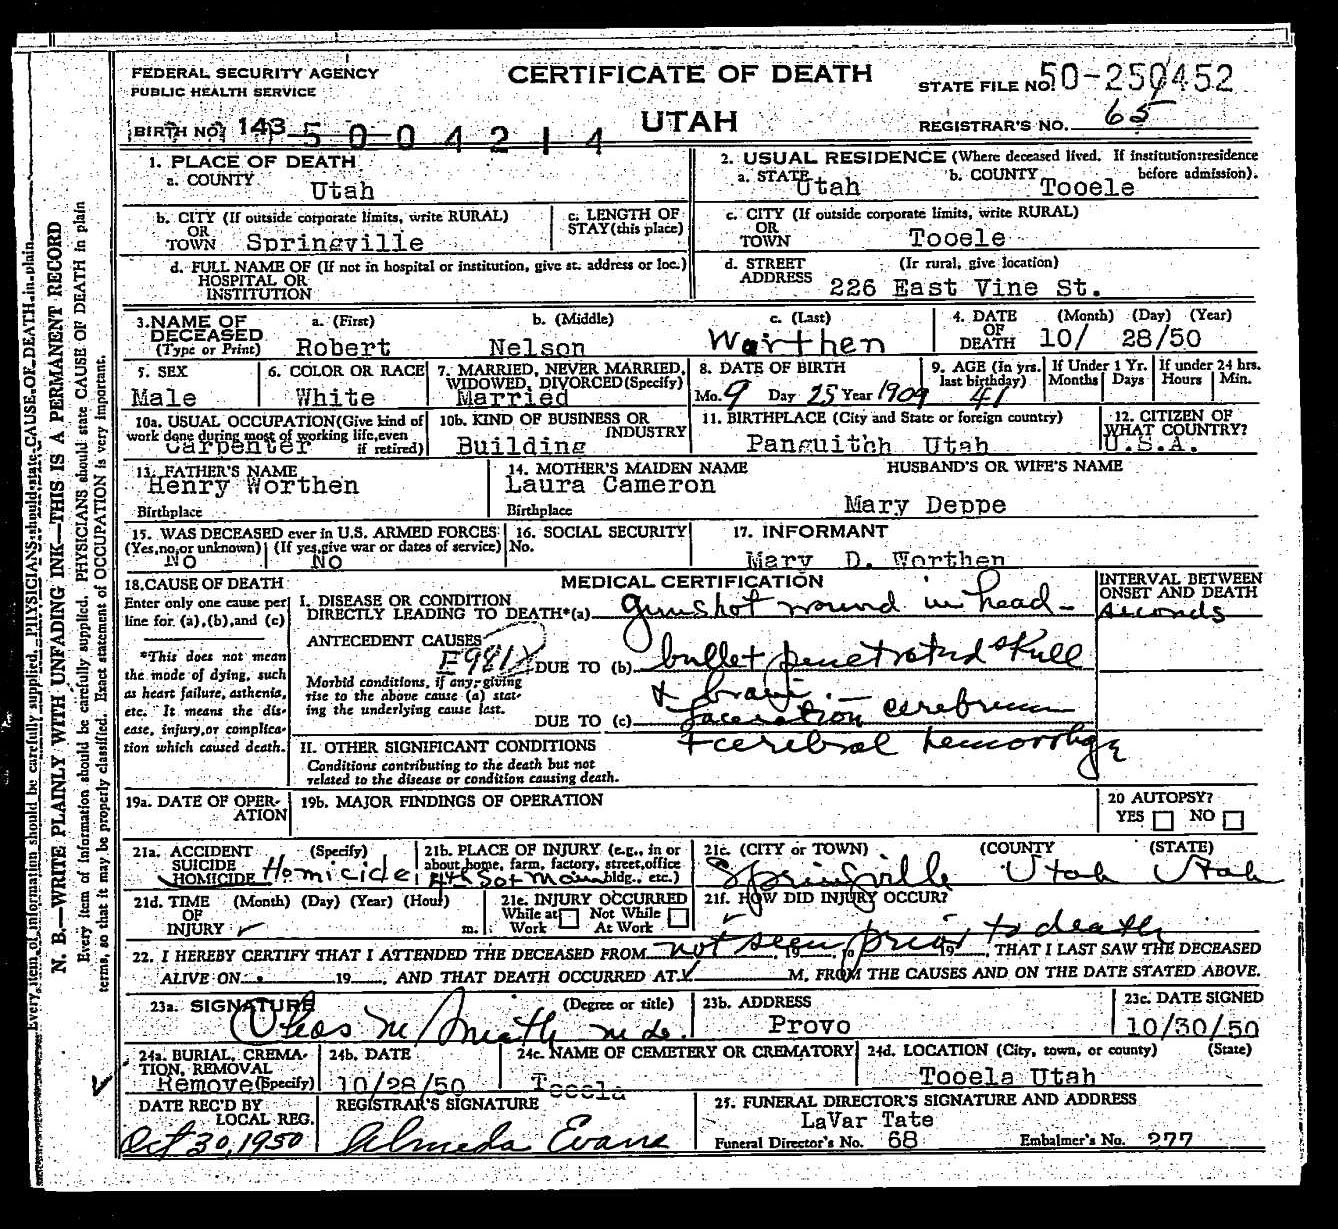 FEDERAL SECURITY AGENCY
PUBLIC HEALTH SERVICE
CERTIFICATE OF DEATH
UTAH
STATE FILE NO. 50-250452
REGISTRAR'S NO. 65
BIRTH NO. 143 5 0 0 4 2 1 4
1. PLACE OF DEATH
a. COUNTY
Utah
2. USUAL RESIDENCE (Where deceased lived. If institution:residence before admission).
a. STATE Utah
b. COUNTY Tooele
b. CITY (If outside corporate limits, write RURAL)
OR
TOWN Springville
c. LENGTH OF
STAY (this place)
c. CITY (If outside corporate limits, write RURAL)
OR
TOWN
Tooele
d. FULL NAME OF (If not in hospital or institution, give st. address or loc.)
HOSPITAL OR
INSTITUTION
d. STREET
ADDRESS
(Ir rural, give location)
226 East Vine St.
3. NAME OF
DECEASED
(Type or Print)
a. (First)
Robert
b. (Middle)
Nelson
c. (Last)
Worthen
4. DATE
OF
DEATH
(Month) (Day) (Year)
10/ 28/50
5. SEX
Male
6. COLOR OR RACE
White
7. MARRIED, NEVER MARRIED,
WIDOWED, DIVORCED (Specify)
Married
8. DATE OF BIRTH
Mo. 9 Day 25 Year 1909
9. AGE (In yrs.
last birthday)
41
If Under 1 Yr.
Months Days
If under 24 hrs.
Hours Min.
10a. USUAL OCCUPATION (Give kind of
work done during most of working life, even
if retired)
Carpenter
10b. KIND OF BUSINESS OR
INDUSTRY
Building
11. BIRTHPLACE (City and State or foreign country)
Panguithh Utah
12. CITIZEN OF
WHAT COUNTRY?
U.S.A.
13. FATHER'S NAME
Henry Worthen
Birthplace
14. MOTHER'S MAIDEN NAME
Laura Cameron
Birthplace
HUSBAND'S OR WIFE'S NAME
Mary Deppe
15. WAS DECEASED ever in U.S. ARMED FORCES:
(Yes,no,or unknown) (If yes,give war or dates of service)
No No
16. SOCIAL SECURITY
No.
17. INFORMANT
Mary D. Worthen
18. CAUSE OF DEATH
Enter only one cause per
line for (a), (b), and (c)
*This does not mean
the mode of dying, such
as heart failure, asthenia,
etc. It means the dis-
ease, injury, or complica-
tion which caused death.
MEDICAL CERTIFICATION
I. DISEASE OR CONDITION
DIRECTLY LEADING TO DEATH*(a) gunshot wound in head -
INTERVAL BETWEEN
ONSET AND DEATH
seconds
ANTECEDENT CAUSES
E981X
DUE TO (b) bullet penetrated skull
Morbid conditions, if any, giving
rise to the above cause (a) stat-
ing the underlying cause last.
& brain. -
DUE TO (c) laceration cerebrum
+ cerebral hemorrhage
II. OTHER SIGNIFICANT CONDITIONS
Conditions contributing to the death but not
related to the disease or condition causing death.
19a. DATE OF OPER-
ATION
19b. MAJOR FINDINGS OF OPERATION
20 AUTOPSY?
YES NO
21a. ACCIDENT (Specify)
SUICIDE
HOMICIDE Homicide
21b. PLACE OF INJURY (e.g., in or
about home, farm, factory, street, office
bldg., etc.)
4th So + Main
21c. (CITY or TOWN) (COUNTY (STATE)
Springville Utah Utah
21d. TIME
OF
INJURY
(Month) (Day) (Year) (Hour)
m.
21e. INJURY OCCURRED
While at Work
Not While At Work
21f. HOW DID INJURY OCCUR?
22. I HEREBY CERTIFY THAT I ATTENDED THE DECEASED FROM not seen, 19 to prior to death 19, THAT I LAST SAW THE DECEASED
ALIVE ON 19, AND THAT DEATH OCCURRED AT M, FROM THE CAUSES AND ON THE DATE STATED ABOVE.
23a. SIGNATURE (Degree or title)
M Smith M.D.
23b. ADDRESS
Provo
23c. DATE SIGNED
10/30/50
24a. BURIAL, CREMA-
TION, REMOVAL
(Specify)
Remove
24b. DATE
10/28/50
24c. NAME OF CEMETERY OR CREMATORY
Tooela
24d. LOCATION (City, town, or county) (State)
Tooela Utah
DATE REC'D BY
LOCAL REG.
Oct 30, 1950
REGISTRAR'S SIGNATURE
Almeda Evans
25. FUNERAL DIRECTOR'S SIGNATURE AND ADDRESS
LaVar Tate
Funeral Director's No. 68
Embalmer's No. 277
N. B.—WRITE PLAINLY WITH UNFADING INK—THIS IS A PERMANENT RECORD
Every item of information should be carefully supplied. PHYSICIANS should state CAUSE OF DEATH in plain
terms, so that it may be properly classified. Exact statement of OCCUPATION is very important.
Every item of information should be carefully supplied. PHYSICIANS should state CAUSE OF DEATH in plain